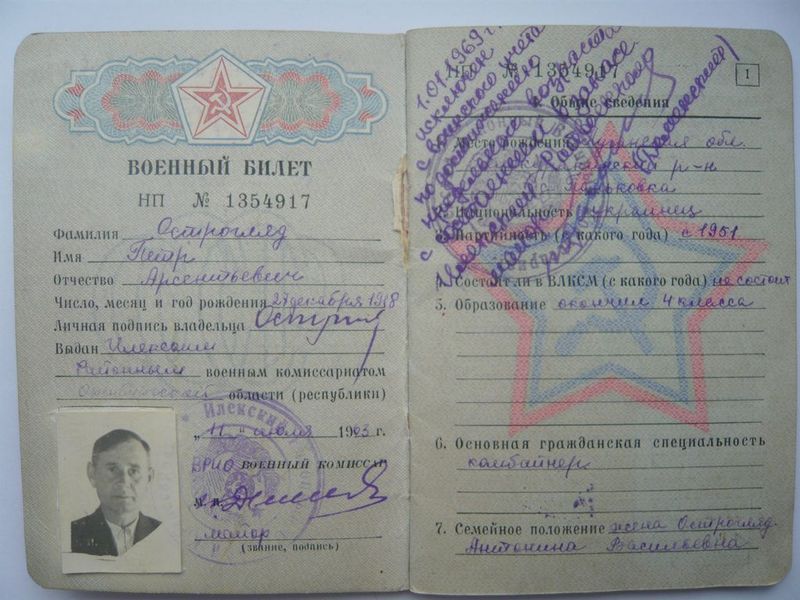 ВОЕННЫЙ БИЛЕТ
НП № 1354917
Фамилия Острогляд
Имя Петр
Отчество Арсентьевич
Число, месяц и год рождения 27 декабря 1918
Личная подпись владельца
Выдан Илекским
Районным военным комиссариатом
Оренбургской области (республики)
Илекский
„11“ июля 1963 г.
ВРИО ВОЕННЫЙ КОМИССАР
М. П.
майор
(звание, подпись)
НП № 1354917
1
1. Общие сведения
1.07.1969 г.
исключен
с воинского учета
по достижению
предельного возраста
с
Илекский
Место рождения обл.
р-н
с.
2. Национальность украинец
3. Партийность (с какого года) с 1951
4. Состоял ли в ВЛКСМ (с какого года) не состоял
5. Образование окончил 4 класса
6. Основная гражданская специальность
комбайнер
7. Семейное положение жена Острогляд
Антонина Васильевна